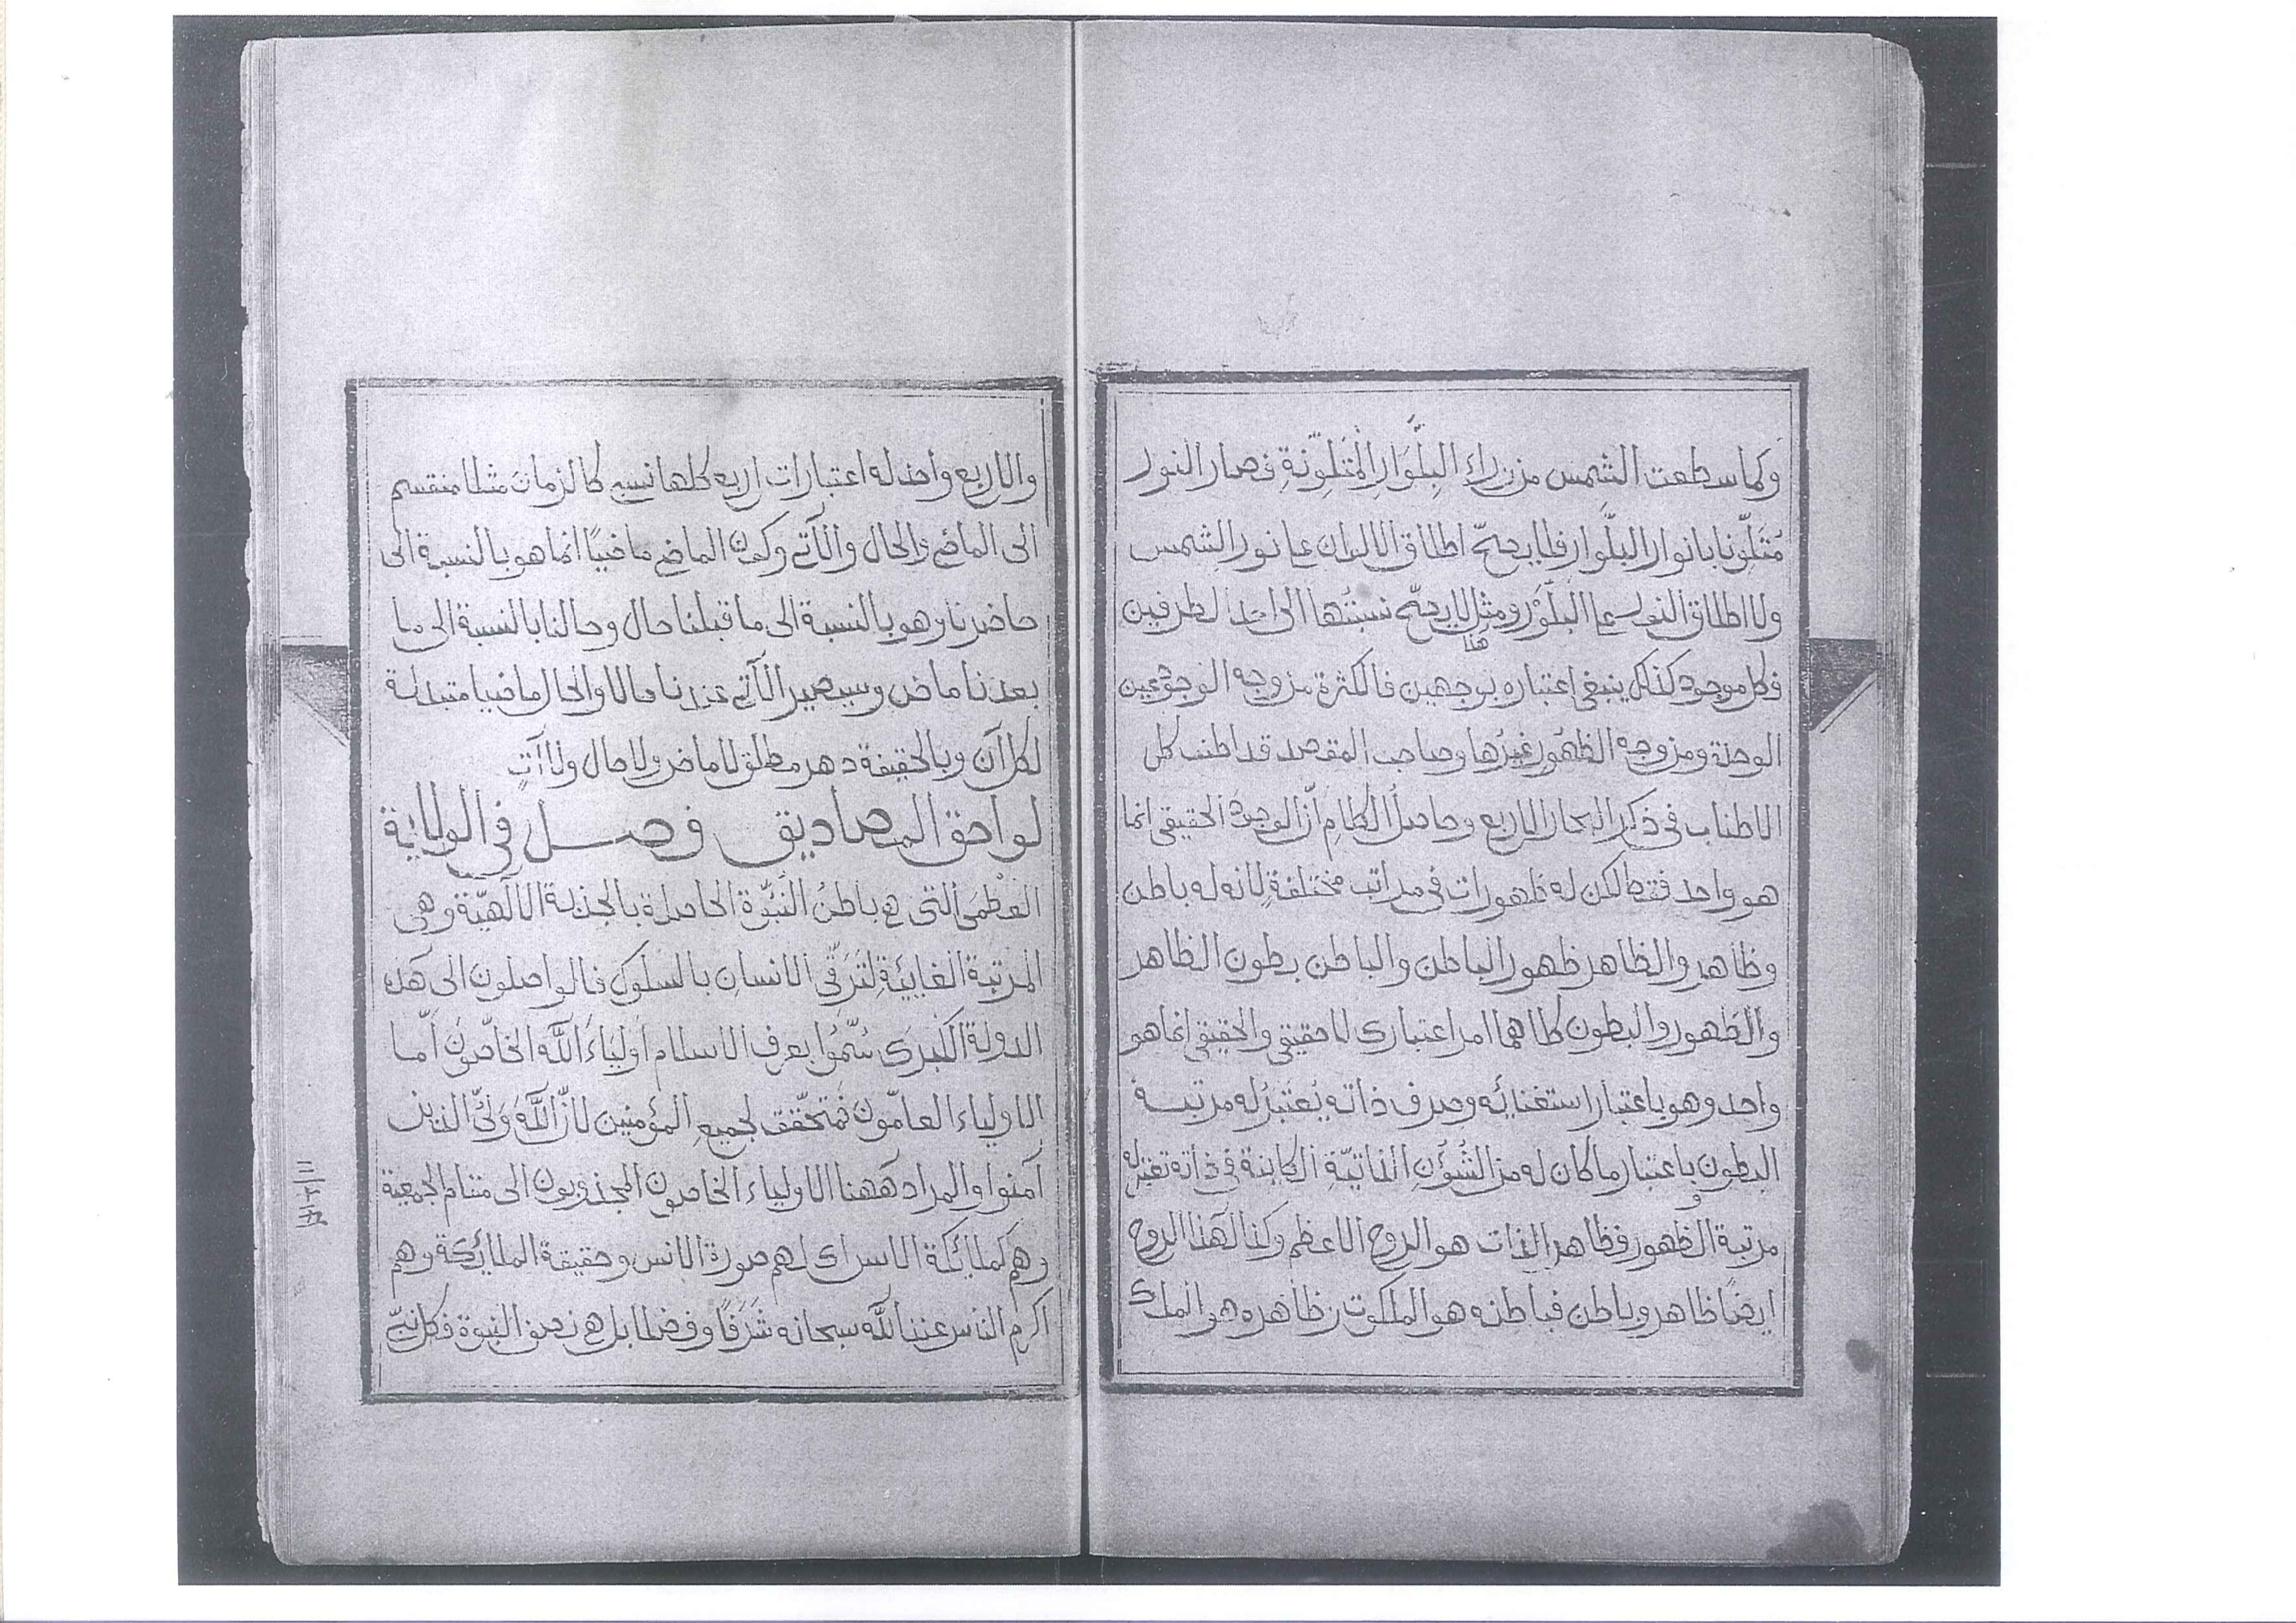 وكما سطعت الشمس من وراء البِلَّوَارِ المُتَلِوّنَةِ فصار النور
مُتَلَوّنا بانوار البلّوار فلا يصحّ اطلاق الالوان على نور الشمس
ولا اطلاق النور على البلّوْر ومثل هذا لا يصحّ نسبتُها الى احد الطرفين
فكل موجود كذلك ينبغي اعتباره بوجهين فالكثرة من وجه الوجود عين
الوحدة ومن وجه الظهور غيرُها وصاحب المقصد قد اطنب كل
الاطناب في ذكر البحار الاربع وحاصلُ الكلامِ انّ الوجودَ الحقيقي انما
هو واحد فقط لكن له ظهورات في مراتب مختلفةٍ لانه له باطن
وظاهر والظاهر ظهور الباطن والباطن بطون الظاهر
والظهور والبطون كلاهما امر اعتباري لا حقيقي والحقيقي انما هو
واحد وهو باعتبار استغنائه وصرف ذاته يُعتَبرُ له مرتبة
البطون وباعتبار ما كان له من الشُؤُنِ الذاتيّة الكاينة في ذاته تعتبر له
مرتبة الظهور فظاهر الذات هو الروح الاعظم وكذا لهذا الروح
ايضًا ظاهر وباطن فباطنه هو الملكوت وظاهره هو الملك
والاربع واحد له اعتبارات اربع كلها نسبي كالزمان مثلا منقسم
الى الماضي والحال والآتي وكون الماضي ماضيًا انما هو بالنسبة الى
حاضرنا وهو بالنسبة الى ما قبلنا حال وحالنا بالنسبة الى ما
بعدنا ماض وسيصير الآتي عندنا حالا والحال ماضيا متبدلة
لكل آن وبالحقيقة دهر مطلق لا ماض ولا حال ولا آتٍ
لواحق المصاديق فصل في الولاية
العظمى التي هي باطنُ النبُوّة الحاصلة بالجذبة الالهيّة وهي
المرتبة الغاييّةِ لتَرَقّي الانسانِ بالسلوك فالواصلون الى هذه
الدولة الكبرى سُمُّوا بعرف الاسلام اَولياءَ اللّه الخاصّونَ امّا
الاولياء العامّون فمتحقّقة لجميعِ المؤمنين لانّ اللّهَ وَليُّ الذين
آمنوا والمراد ههنا الاولياء الخاصون المجذوبون الى مقام الجمعية
وهم كملائكة الاسراء لهم صورة الانس وحقيقة الملائكة وهم
اكرم الناس عند اللّه سبحانه شَرَفًا وفضلا بل هي نصف النبوة فكل نبيّ